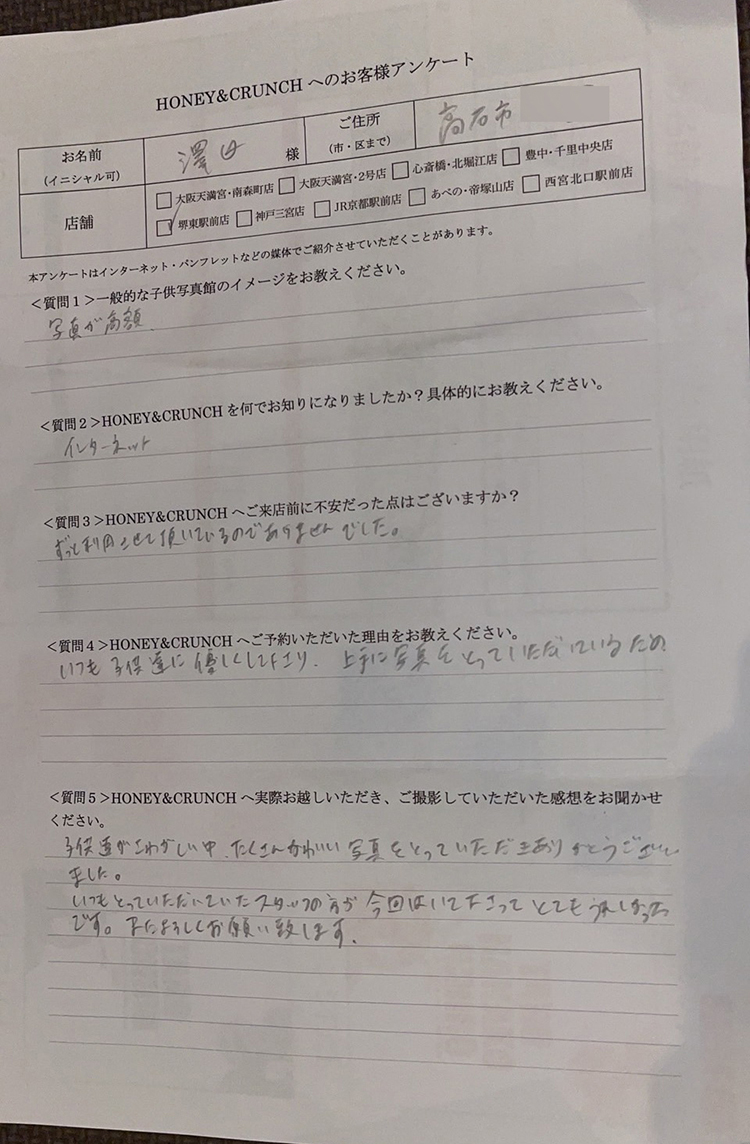 HONEY&CRUNCH へのお客様アンケート
お名前
(イニシャル可)
澤田 様
ご住所
(市・区まで)
高石市
店舗
□大阪天満宮・南森町店 □大阪天満宮・2号店 □心斎橋・北堀江店 □豊中・千里中央店
☑堺東駅前店 □神戸三宮店 □JR京都駅前店 □あべの・帝塚山店 □西宮北口駅前店
本アンケートはインターネット・パンフレットなどの媒体でご紹介させていただくことがあります。
<質問1>一般的な子供写真館のイメージをお教えください。
写真が高額.
<質問2>HONEY&CRUNCH を何でお知りになりましたか？具体的にお教えください。
インターネット
<質問3>HONEY&CRUNCH へご来店前に不安だった点はございますか？
ずっと利用させて頂いているのでありませんでした。
<質問4>HONEY&CRUNCH へご予約いただいた理由をお教えください。
いつも子供達に優しくして下さり、上手に写真をとっていただいているため
<質問5>HONEY&CRUNCH へ実際お越しいただき、ご撮影していただいた感想をお聞かせ
ください。
子供達がさわがしい中、たくさんかわいい写真をとっていただきありがとうござい
ました。
いつもとっていただいていたスタッフの方が今回はいて下さってとてもうれしかった
です。またよろしくお願い致します.